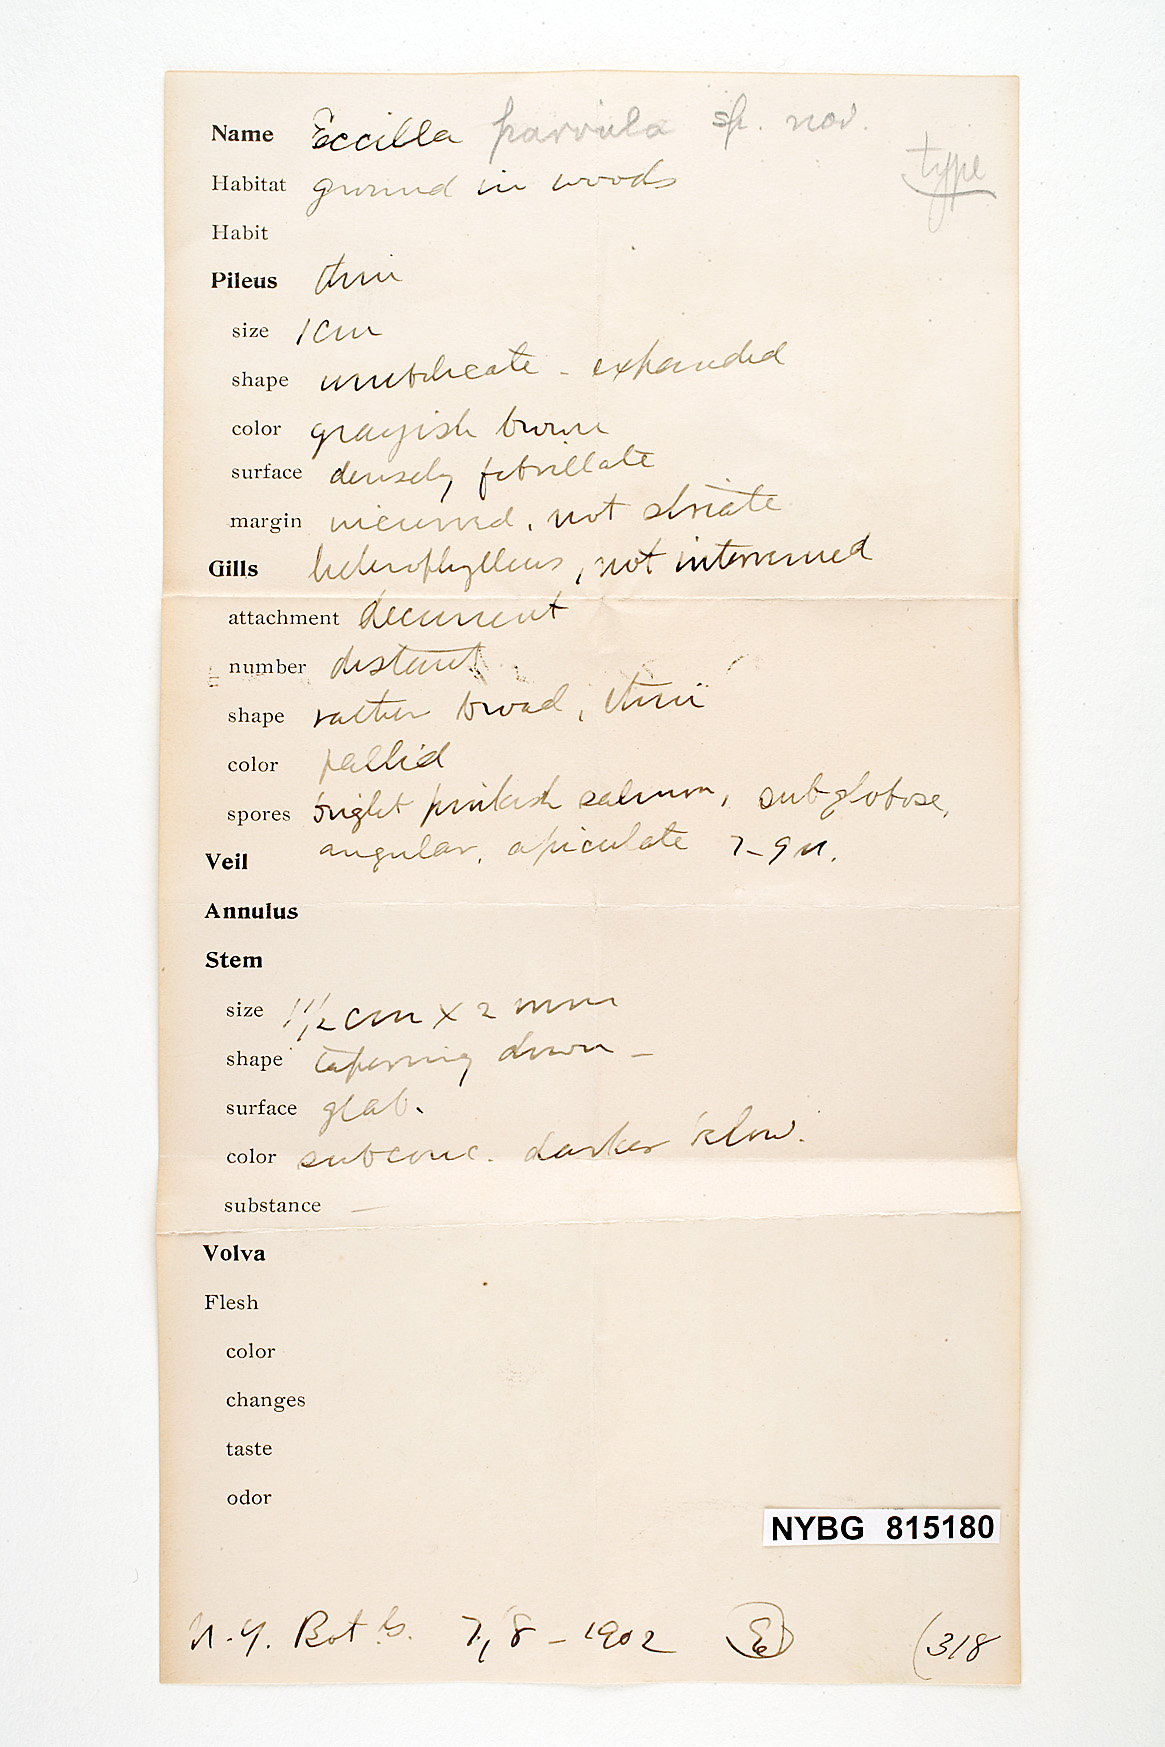 Name Eccilia parvula sp. nov.
type
Habitat ground in woods
Habit
Pileus thin
size 1 cm
shape umbilicate - expanded
color grayish brown
surface densely fibrillate
margin incurved, not striate
Gills heterophyllous, not interveined
attachment decurrent
number distant
shape rather broad, thin
color pallid
spores bright pinkish salmon, subglobose,
Veil angular, apiculate 7-9 µ.
Annulus
Stem
size 1 1/2 cm x 2 mm
shape tapering down -
surface glab.
color subconc. darker below.
substance —
Volva
Flesh
color
changes
taste
odor
NYBG 815180
N.Y. Bot. G. 7, 8 - 1902 (318